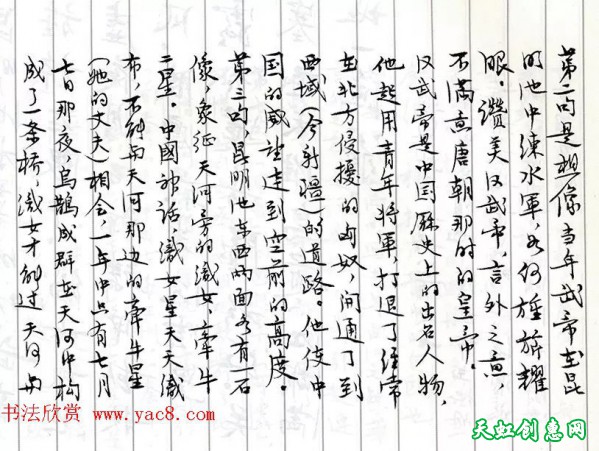 第二句是想像当年武帝在昆
明池中练水軍，如何旌旂耀
眼。讚美汉武帝，言外之意，
不满意唐朝那时的皇帝。
汉武帝是中国歷史上的出名人物，
他起用青年将軍，打退了经常
在北方侵擾的匈奴，闹通了到
西域（今新疆）的道路。他使中
国的威望達到空前的高度。
第三句，昆明池东西两面各有一石
像，象征天河旁的織女、牽牛
二星。中國神话，織女星天天織
布，不能与天河那边的牽牛星
（她的丈夫）相会，一年中只有七月
七日那夜，烏鵲成群在天河中构
成了一条桥，織女才能过天河与
书法欣赏 www.yac8.com
天虹创惠网